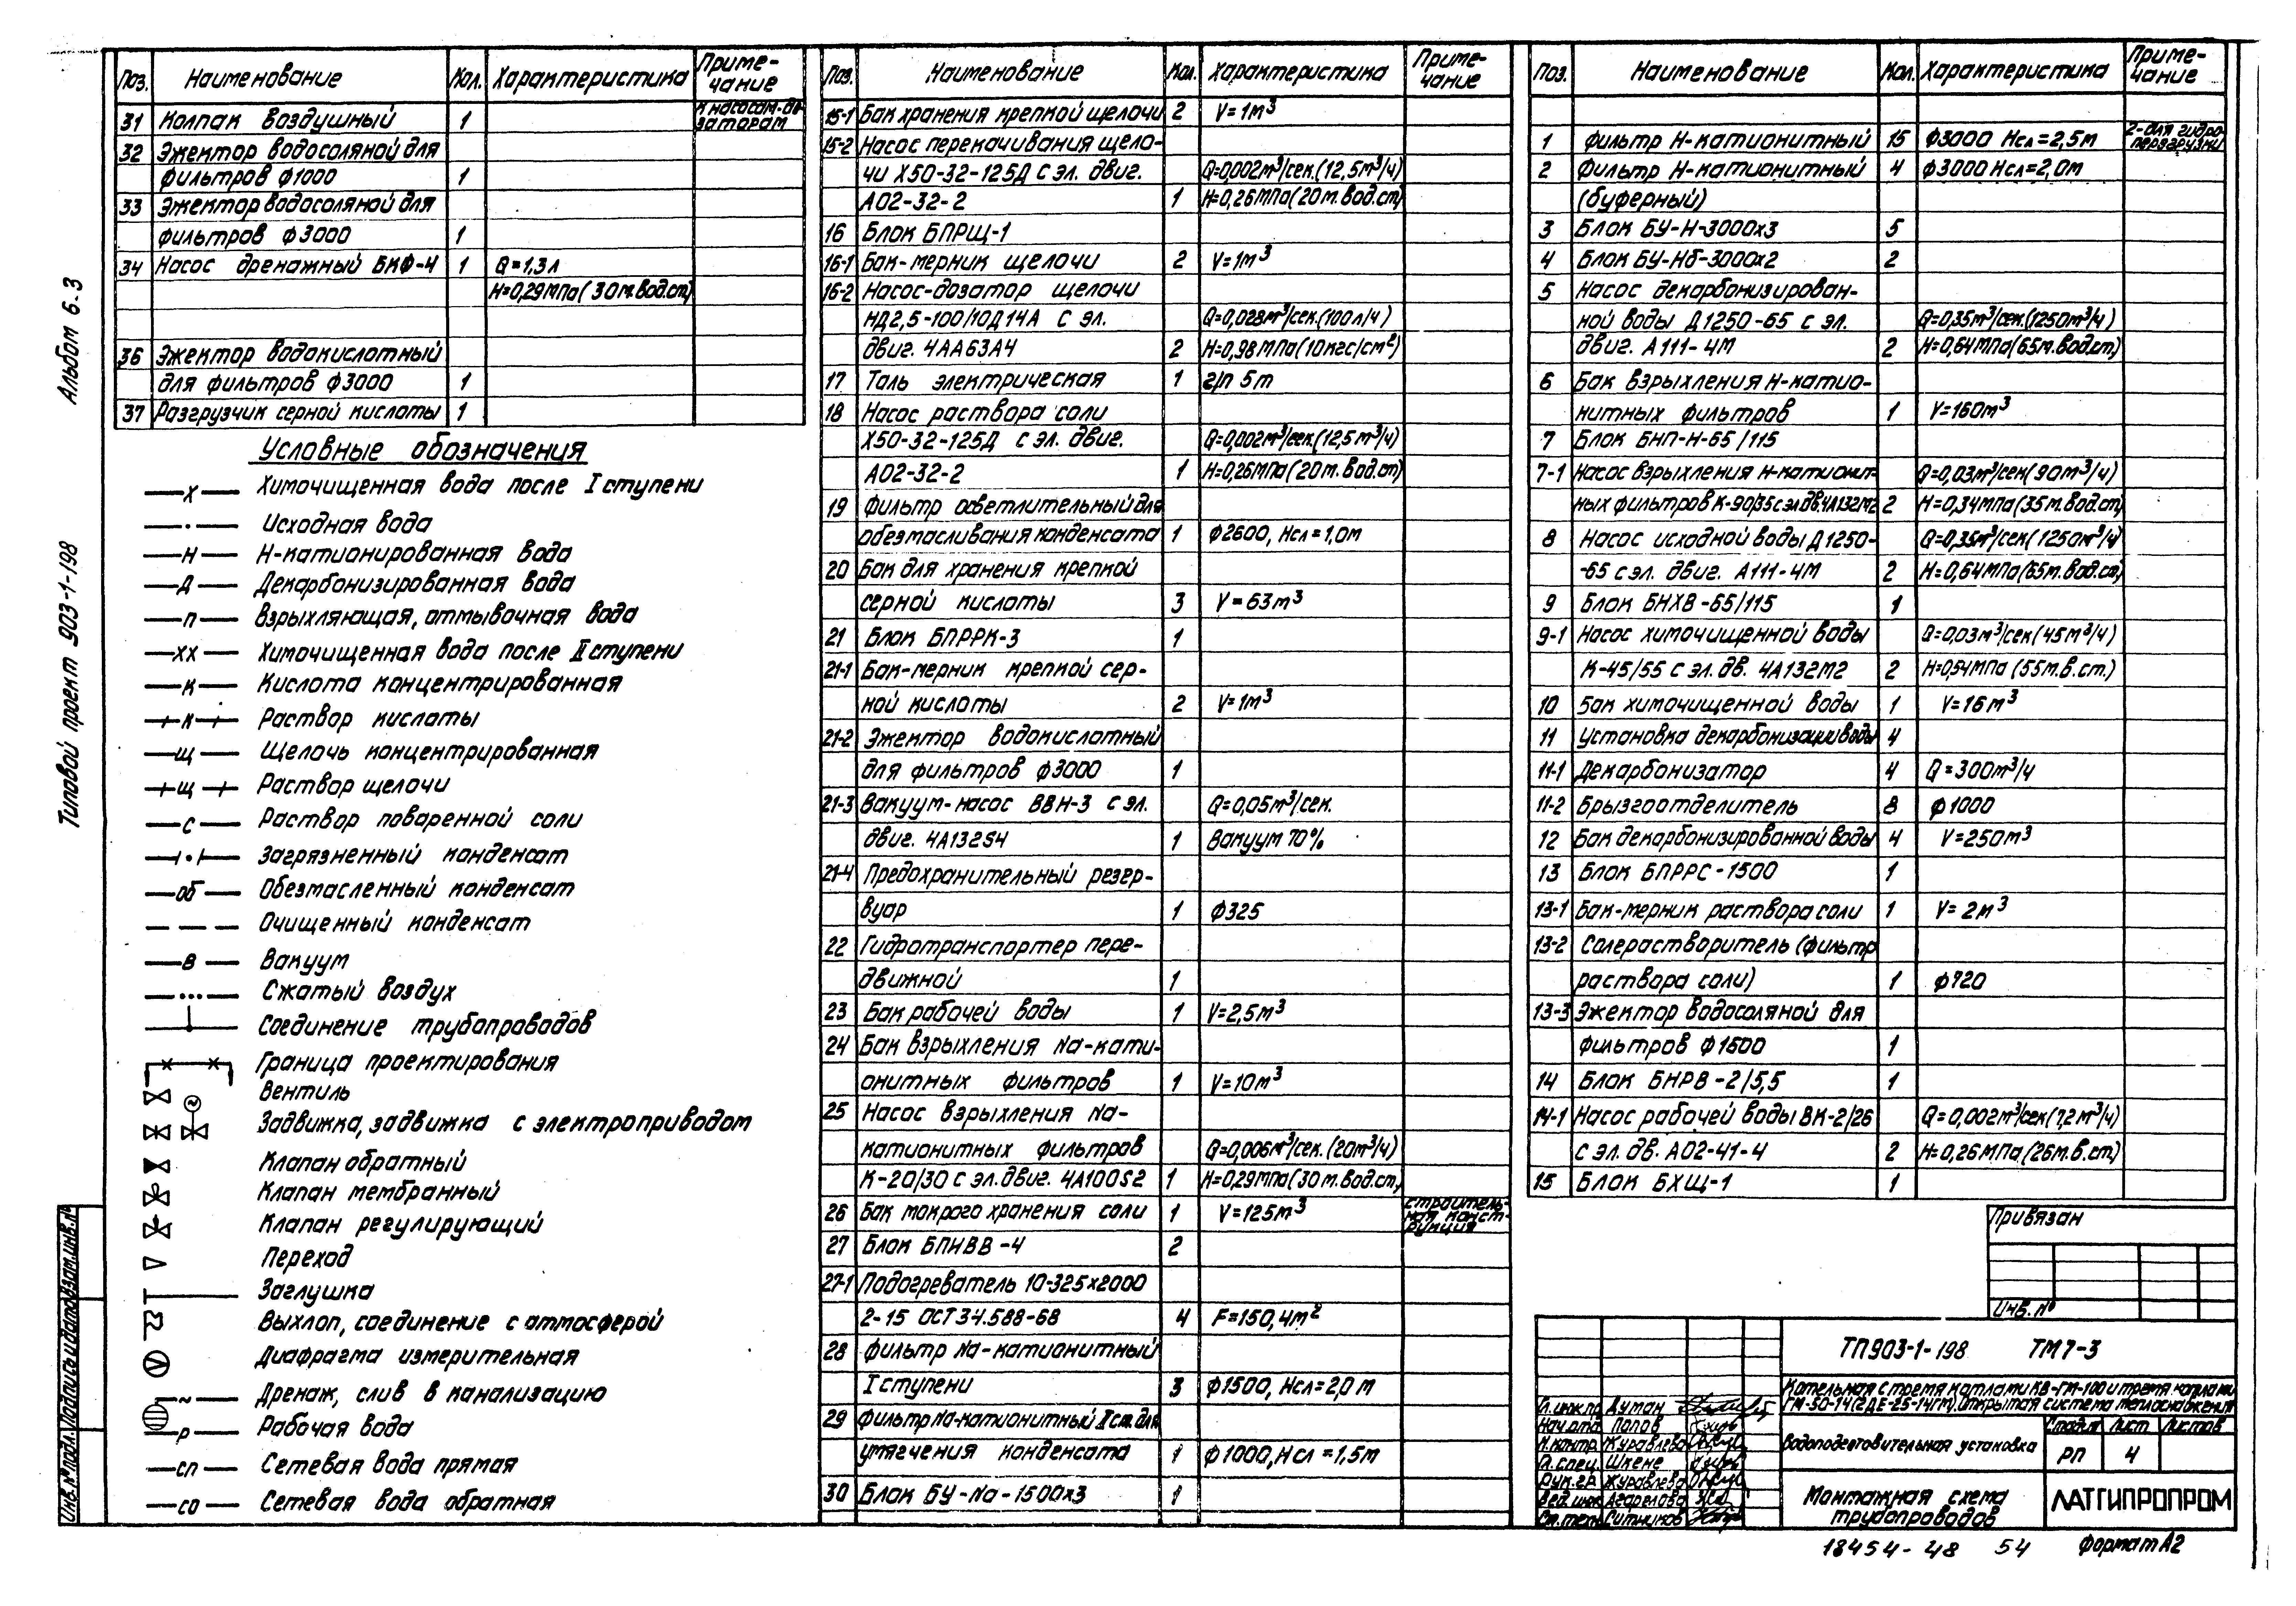 Альбом 6.3
Типовой проект 903-1-198
Поз. Наименование Кол. Характеристика Примечание
31 Колпак воздушный 1 К насосам-дозаторам
32 Эжектор водосоляной для
фильтров ф1000 1
33 Эжектор водосоляной для
фильтров ф3000 1
34 Насос дренажный БКФ-4 1 Q=1,3л
H=0,29МПа(30м.вод.ст)
36 Эжектор водокислотный
для фильтров ф3000 1
37 Разгрузчик серной кислоты 1
Условные обозначения
Х Химочищенная вода после I ступени
Исходная вода
Н Н-катионированная вода
Д Декарбонизированная вода
П Взрыхляющая, отмывочная вода
ХХ Химочищенная вода после II ступени
К Кислота концентрированная
К Раствор кислоты
Щ Щелочь концентрированная
Щ Раствор щелочи
С Раствор поваренной соли
Загрязненный конденсат
об Обезмасленный конденсат
Очищенный конденсат
В Вакуум
Сжатый воздух
Соединение трубопроводов
Граница проектирования
Вентиль
Задвижка, задвижка с электроприводом
Клапан обратный
Клапан мембранный
Клапан регулирующий
Переход
Заглушка
Выхлоп, соединение с атмосферой
Диафрагма измерительная
Дренаж, слив в канализацию
Р Рабочая вода
СП Сетевая вода прямая
СО Сетевая вода обратная
Поз. Наименование Кол. Характеристика Примечание
15-1 Бак хранения крепкой щелочи 2 V=1м³
15-2 Насос перекачивания щело-
чи Х50-32-125Д с эл. двиг. Q=0,002м³/сек.(12,5м³/ч)
АО2-32-2 1 H=0,26МПа(20м.вод.ст)
16 Блок БПРЩ-1
16-1 Бак-мерник щелочи 2 V=1м³
16-2 Насос-дозатор щелочи
НД2,5-100/10Д14А с эл. Q=0,028м³/сек.(100л/ч)
двиг. 4АА63А4 2 H=0,98МПа(10кгс/см²)
17 Таль электрическая 1 г/п 5т
18 Насос раствора соли
Х50-32-125Д с эл. двиг. Q=0,002м³/сек.(12,5м³/ч)
АО2-32-2 1 H=0,26МПа(20м.вод.ст)
19 Фильтр осветлительный для
обезмасливания конденсата 1 ф2600, Нсл=1,0м
20 Бак для хранения крепкой
серной кислоты 3 V=63м³
21 Блок БПРРК-3 1
21-1 Бак-мерник крепкой сер-
ной кислоты 2 V=1м³
21-2 Эжектор водокислотный
для фильтров ф3000 1
21-3 Вакуум-насос ВВН-3 с эл. Q=0,05м³/сек.
двиг. 4А132S4 1 Вакуум 70%
21-4 Предохранительный резер-
вуар 1 ф325
22 Гидротранспортер пере-
движной 1
23 Бак рабочей воды 1 V=2,5м³
24 Бак взрыхления Na-кати-
онитных фильтров 1 V=10м³
25 Насос взрыхления Na-
катионитных фильтров Q=0,006м³/сек.(20м³/ч)
К-20/30 с эл.двиг. 4А100S2 1 H=0,29МПа(30м.вод.ст)
26 Бак мокрого хранения соли 1 V=125м³ строительная конструкция
27 Блок БПНВВ-4 2
27-1 Подогреватель 10-325х2000
2-15 ОСТ34.588-68 4 F=150,4м²
28 Фильтр Na-катионитный
I ступени 3 ф1500, Нсл=2,0м
29 Фильтр Na-катионитный I ст. для
умягчения конденсата 1 ф1000, Нсл=1,5м
30 Блок БУ-Na-1500х3 1
Поз. Наименование Кол. Характеристика Примечание
1 Фильтр Н-катионитный 15 ф3000 Нсл=2,5м 2-для гидроперегрузки
2 Фильтр Н-катионитный 4 ф3000 Нсл=2,0м
(буферный)
3 Блок БУ-Н-3000х3 5
4 Блок БУ-Нб-3000х2 2
5 Насос декарбонизирован-
ной воды Д1250-65 с эл. Q=0,35м³/сек.(1250м³/ч)
двиг. А111-4М 2 H=0,64МПа(65м.вод.ст)
6 Бак взрыхления Н-катио-
нитных фильтров 1 V=160м³
7 Блок БНП-Н-65/115
7-1 Насос взрыхления Н-катионит- Q=0,03м³/сек(90м³/ч)
ных фильтров К-90/35 с эл.дв.4А132М2 2 H=0,34МПа(35м.вод.ст)
8 Насос исходной воды Д1250- Q=0,35м³/сек(1250м³/ч
-65 с эл. двиг. А111-4М 2 H=0,64МПа(65м.вод.ст)
9 Блок БНХВ-65/115 1
9-1 Насос химочищенной воды Q=0,03м³/сек(45м³/ч)
К-45/55 с эл. дв. 4А132М2 2 H=0,54МПа (55м.в.ст.)
10 Бак химочищенной воды 1 V=16м³
11 Установка декарбонизации воды 4
11-1 Декарбонизатор 4 Q=300м³/ч
11-2 Брызгоотделитель 8 ф1000
12 Бак декарбонизированной воды 4 V=250м³
13 Блок БПРРС-1500 1
13-1 Бак-мерник раствора соли 1 V=2м³
13-2 Солерастворитель (фильтр
раствора соли) 1 ф720
13-3 Эжектор водосоляной для
фильтров ф1500 1
14 Блок БНРВ-2/5,5 1
14-1 Насос рабочей воды ВК-2/26 Q=0,002м³/сек(7,2м³/ч)
с эл. дв. АО2-41-4 2 H=0,26МПа(26м.в.ст.)
15 Блок БХЩ-1 1
Привязан
Инв. №
ТП903-1-198 ТМ7-3
Котельная с тремя котлами КВ-ГМ-100 и тремя котлами
ГМ-50-14(2ДЕ-25-14ГМ). Открытая система теплоснабжения
Водоподготовительная установка
Стадия Лист Листов
РП 4
Монтажная схема
трубопроводов
ЛАТГИПРОПРОМ
Гл.инж.пр. Ауман
Нач.отд. Попов
Н.контр. Журавлева
Гл.спец. Шкене
Рук.гр. Журавлева
Вед.инж. Агарелова
Ст.техн. Ситников
Инв.№ подл. Подпись и дата Взам.инв.№
18454-48 54 Формат А2